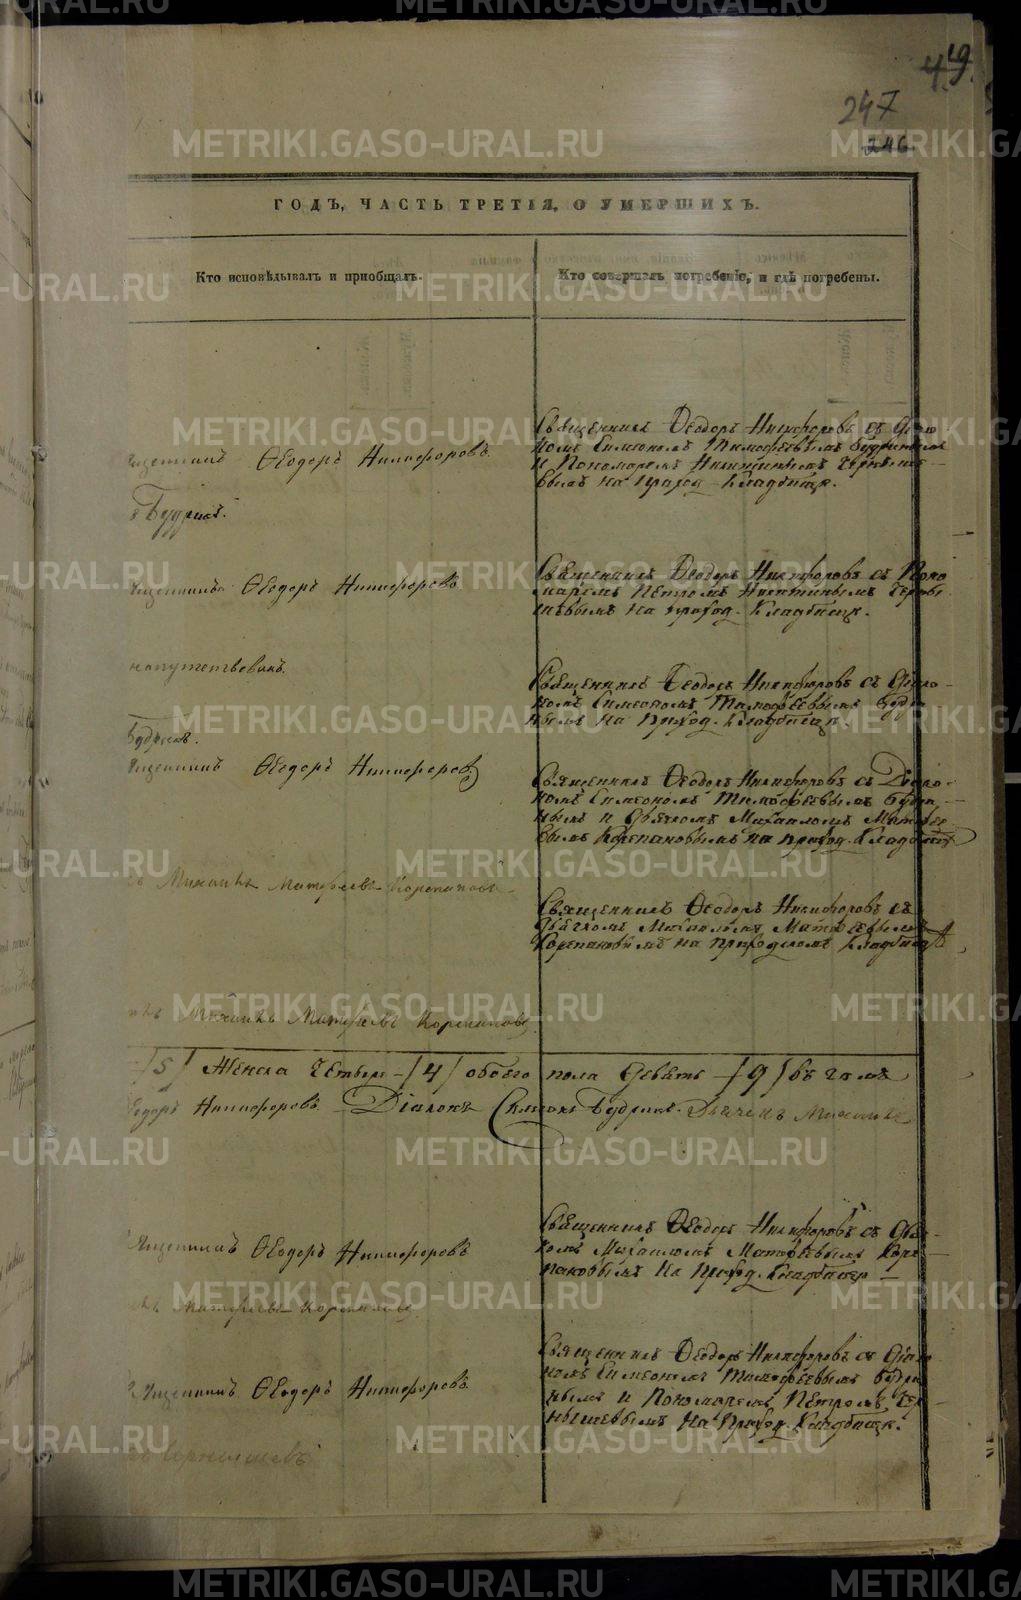 49.
247
246
ГОДЪ, ЧАСТЬ ТРЕТІЯ, О УМЕРШИХЪ.
Кто исповѣдывалъ и пріобщалъ.
Кто совершалъ погребеніе, и гдѣ погребены.
Священникъ Ѳеодоръ Никифоровъ съ Діако
номъ Симеономъ Тимофеевымъ Будринымъ
и Пономаремъ Никитинымъ
вымъ на приход. Кладбищѣ.
щенникъ Ѳеодоръ Никифоровъ
Будринъ.
Священникъ Ѳеодоръ Никифоровъ съ Поно
маремъ Петромъ Никитинымъ Черны
шевымъ на приход. Кладбищѣ.
щенникъ Ѳеодоръ Никифоровъ
напутствованъ.
Священникъ Ѳеодоръ Никифоровъ съ Діако-
номъ Симеономъ Тимофеевымъ Будри
нымъ на приход. Кладбищѣ.
Будринъ.
щенникъ Ѳеодоръ Никифоровъ
Священникъ Ѳеодоръ Никифоровъ съ Діако-
номъ Симеономъ Тимофеевымъ Будри
нымъ и Дьячкомъ Михаиломъ Матвѣе
вымъ Корепановымъ на приход. Кладбищѣ
ъ Михаилъ Матфѣевъ Корепановъ
Священникъ Ѳеодоръ Никифоровъ съ
Дьячкомъ Михаиломъ Матвѣевымъ
Корепановымъ на приходскомъ Кладбищѣ
Михаилъ Матфѣевъ Корепановъ
/5/ Женска Четверо /4/ обоего пола Девять /9/ въ томъ
еодоръ Никифоровъ Діаконъ Симеонъ Будринъ. Дьячекъ Михаилъ
Священникъ Ѳеодоръ Никифоровъ съ Дьяч
комъ Михаиломъ Матфѣевымъ Коре
пановымъ на приход. Кладбищѣ
ященникъ Ѳеодоръ Никифоровъ
Матфѣевъ Корепановъ
Священникъ Ѳеодоръ Никифоровъ съ Діако
номъ Симеономъ Тимофеевымъ Будри
нымъ и Пономаремъ Петромъ Чер
нышевымъ на приход. Кладбищѣ.
ященникъ Ѳеодоръ Никифоровъ
Чернышевъ
METRIKI.GASO-URAL.RU